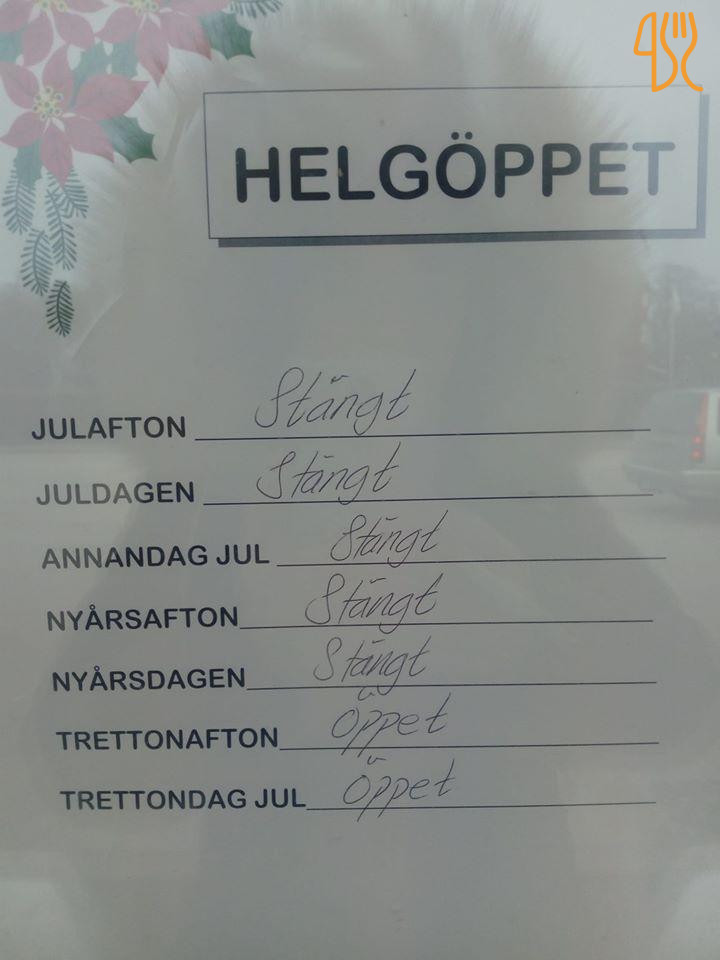 HELGÖPPET
JULAFTON Stängt
JULDAGEN Stängt
ANNANDAG JUL Stängt
NYÅRSAFTON Stängt
NYÅRSDAGEN Stängt
TRETTONAFTON Öppet
TRETTONDAG JUL Öppet